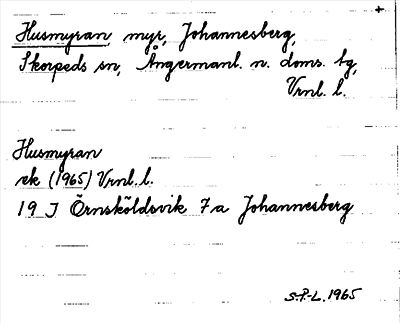 Husmyran myr, Johannesberg,
Skorpeds sn, Ångermanl. n. doms. tg,
Vrnl. l.
Husmyran
ek (1965) Vrnl. l.
19 J Örnsköldsvik 7a Johannesberg
S.P.-L. 1965